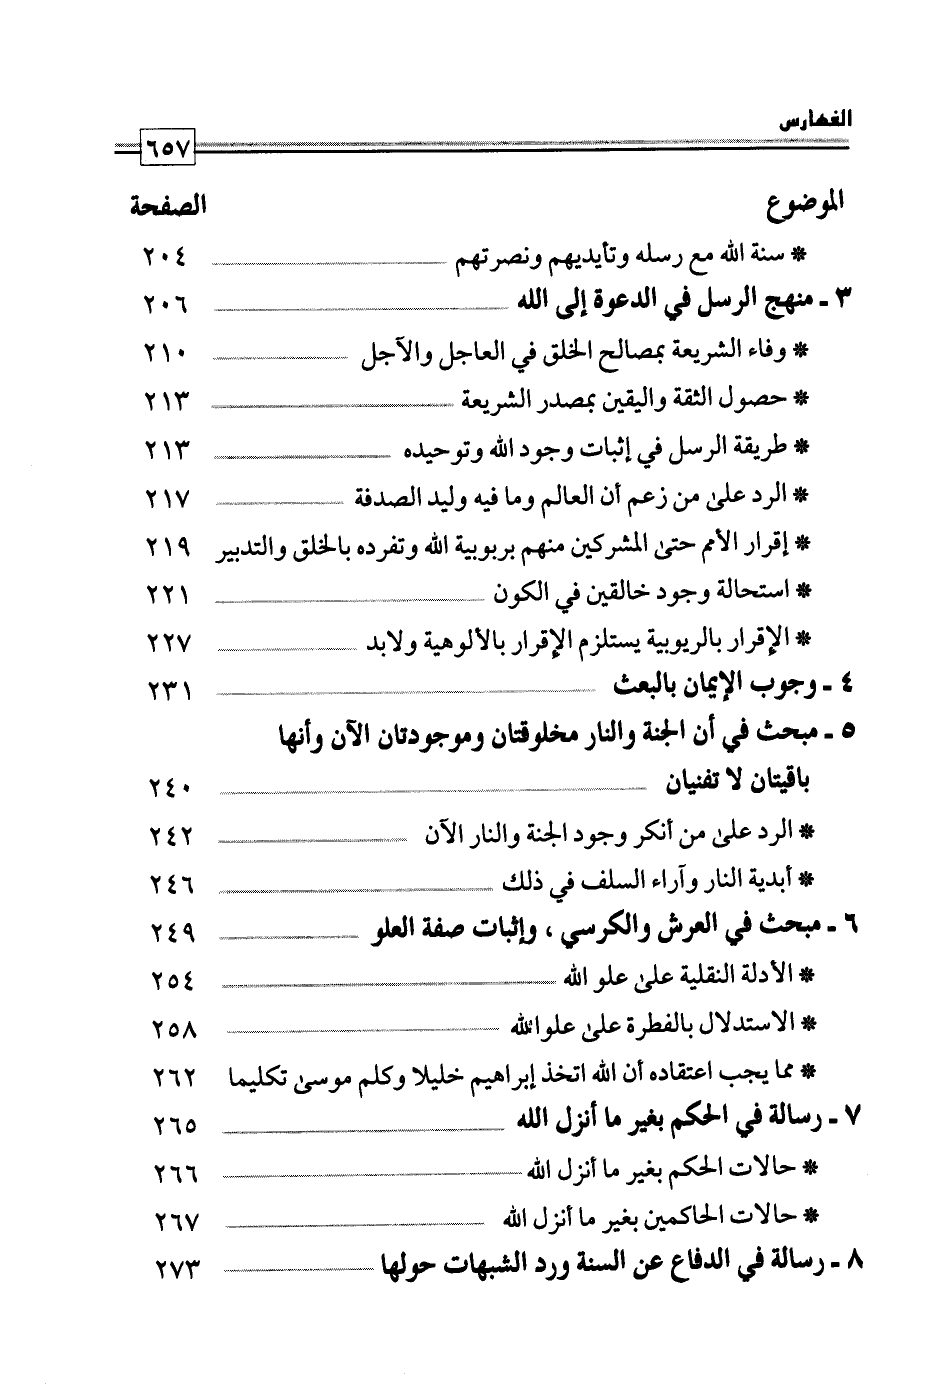 الفهارس
٦٥٧
الموضوع الصفحة
* سنة الله مع رسله وتأييدهم ونصرتهم ٢٠٤
٣ ـ منهج الرسل في الدعوة إلى الله ٢٠٦
* وفاء الشريعة بمصالح الخلق في العاجل والآجل ٢١٠
* حصول الثقة واليقين بمصدر الشريعة ٢١٣
* طريقة الرسل في إثبات وجود الله وتوحيده ٢١٣
* الرد على من زعم أن العالم وما فيه وليد الصدفة ٢١٧
* إقرار الأمم حتى المشركين منهم بربوبية الله وتفرده بالخلق والتدبير ٢١٩
* استحالة وجود خالقين في الكون ٢٢١
* الإقرار بالربوبية يستلزم الإقرار بالألوهية ولابد ٢٢٧
٤ ـ وجوب الإيمان بالبعث ٢٣١
٥ ـ مبحث في أن الجنة والنار مخلوقتان وموجودتان الآن وأنها
باقيتان لا تفنيان ٢٤٠
* الرد على من أنكر وجود الجنة والنار الآن ٢٤٢
* أبدية النار وآراء السلف في ذلك ٢٤٦
٦ ـ مبحث في العرش والكرسي ، وإثبات صفة العلو ٢٤٩
* الأدلة النقلية على علو الله ٢٥٤
* الاستدلال بالفطرة على علو الله ٢٥٨
* مما يجب اعتقاده أن الله اتخذ إبراهيم خليلا وكلم موسى تكليما ٢٦٢
٧ ـ رسالة في الحكم بغير ما أنزل الله ٢٦٥
* حالات الحكم بغير ما أنزل الله ٢٦٦
* حالات الحاكمين بغير ما أنزل الله ٢٦٧
٨ ـ رسالة في الدفاع عن السنة ورد الشبهات حولها ٢٧٣